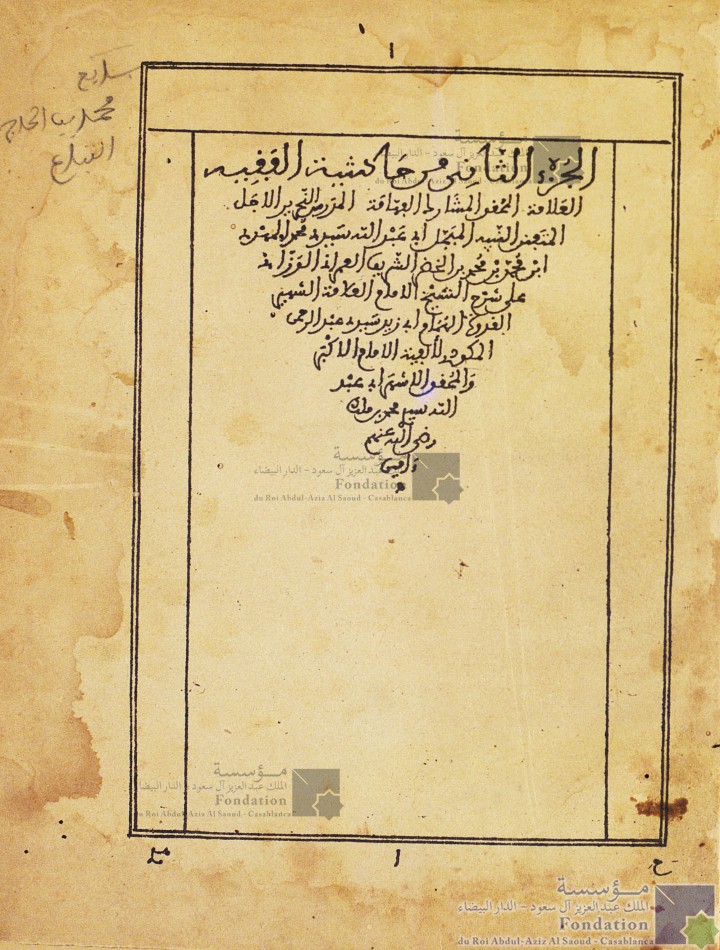 ا
الجزء الثاني من حاشية الفقيه
العلامة المحقق المشارك الفهامة المدرس النحرير الأجل
المتفنن الفقيه المبجل أبي عبد الله سيدي محمد المهدي
ابن محمد بن محمد بن الخضر الشريف العمراني الوزاني
على شرح الشيخ الإمام العلامة الشهير
القدوة الهمام أبي زيد سيدي عبد الرحمن
المكودي لألفية الإمام الأكبر
والمحقق الأشهر أبي عبد
الله سيدي محمد بن مالك
رضي الله عنهم
ءامين
محمد بن الحاج
ح
ا
مؤسسة
الملك عبد العزيز آل سعود - الدار البيضاء
Fondation
du Roi Abdul-Aziz Al Saoud - Casablanca
مؤسسة
الملك عبد العزيز آل سعود - الدار البيضاء
Fondation
du Roi Abdul-Aziz Al Saoud - Casablanca
مؤسسة
الملك عبد العزيز آل سعود - الدار البيضاء
Fondation
du Roi Abdul-Aziz Al Saoud - Casablanca